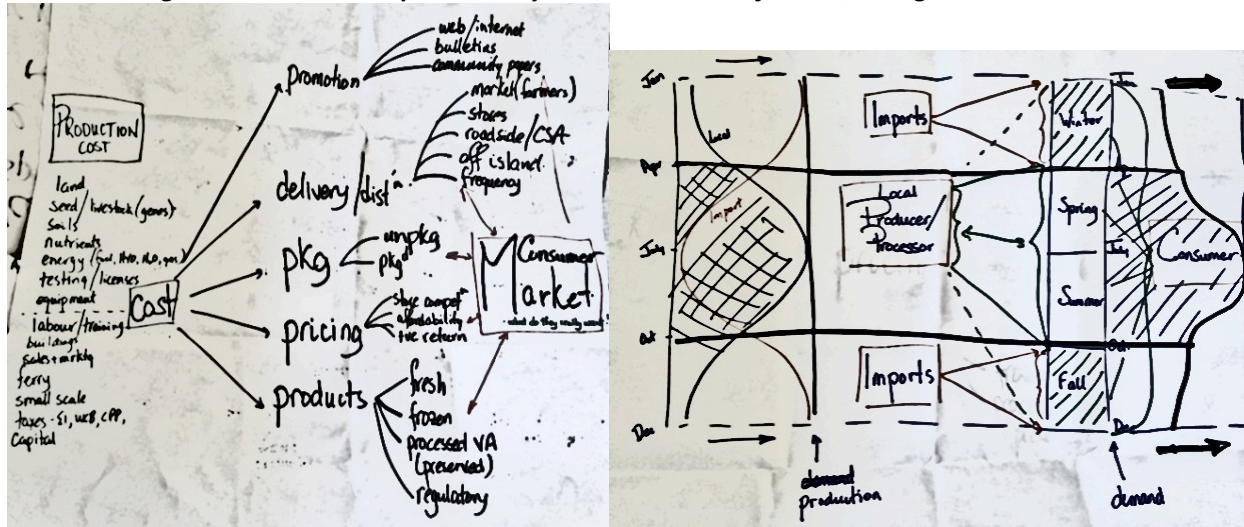 PRODUCTION
COST
land
seed/livestock (genes)
soils
nutrients
energy
testing/licenses
equipment
labour/training
buildings
sales + mrktg
ferry
small scale
taxes - EI, WCB, CPP,
Capital
Cost
promotion
web/internet
bulletins
community papers
delivery/dist'n
market (farmers)
stores
roadside/CSA
off island
frequency
pkg
unpkg
pkg'd
pricing
store compet'n
affordability
+ve return
products
fresh
frozen
processed VA
(preserved)
regulatory
Consumer
Market
- what do they really want?
Jan
Apr
July
Oct
Dec
Local
Import
Imports
Local
Producer/
Processor
Imports
Winter
Spring
Summer
Fall
Jan
July
Oct
Dec
Consumer
demand
production
demand